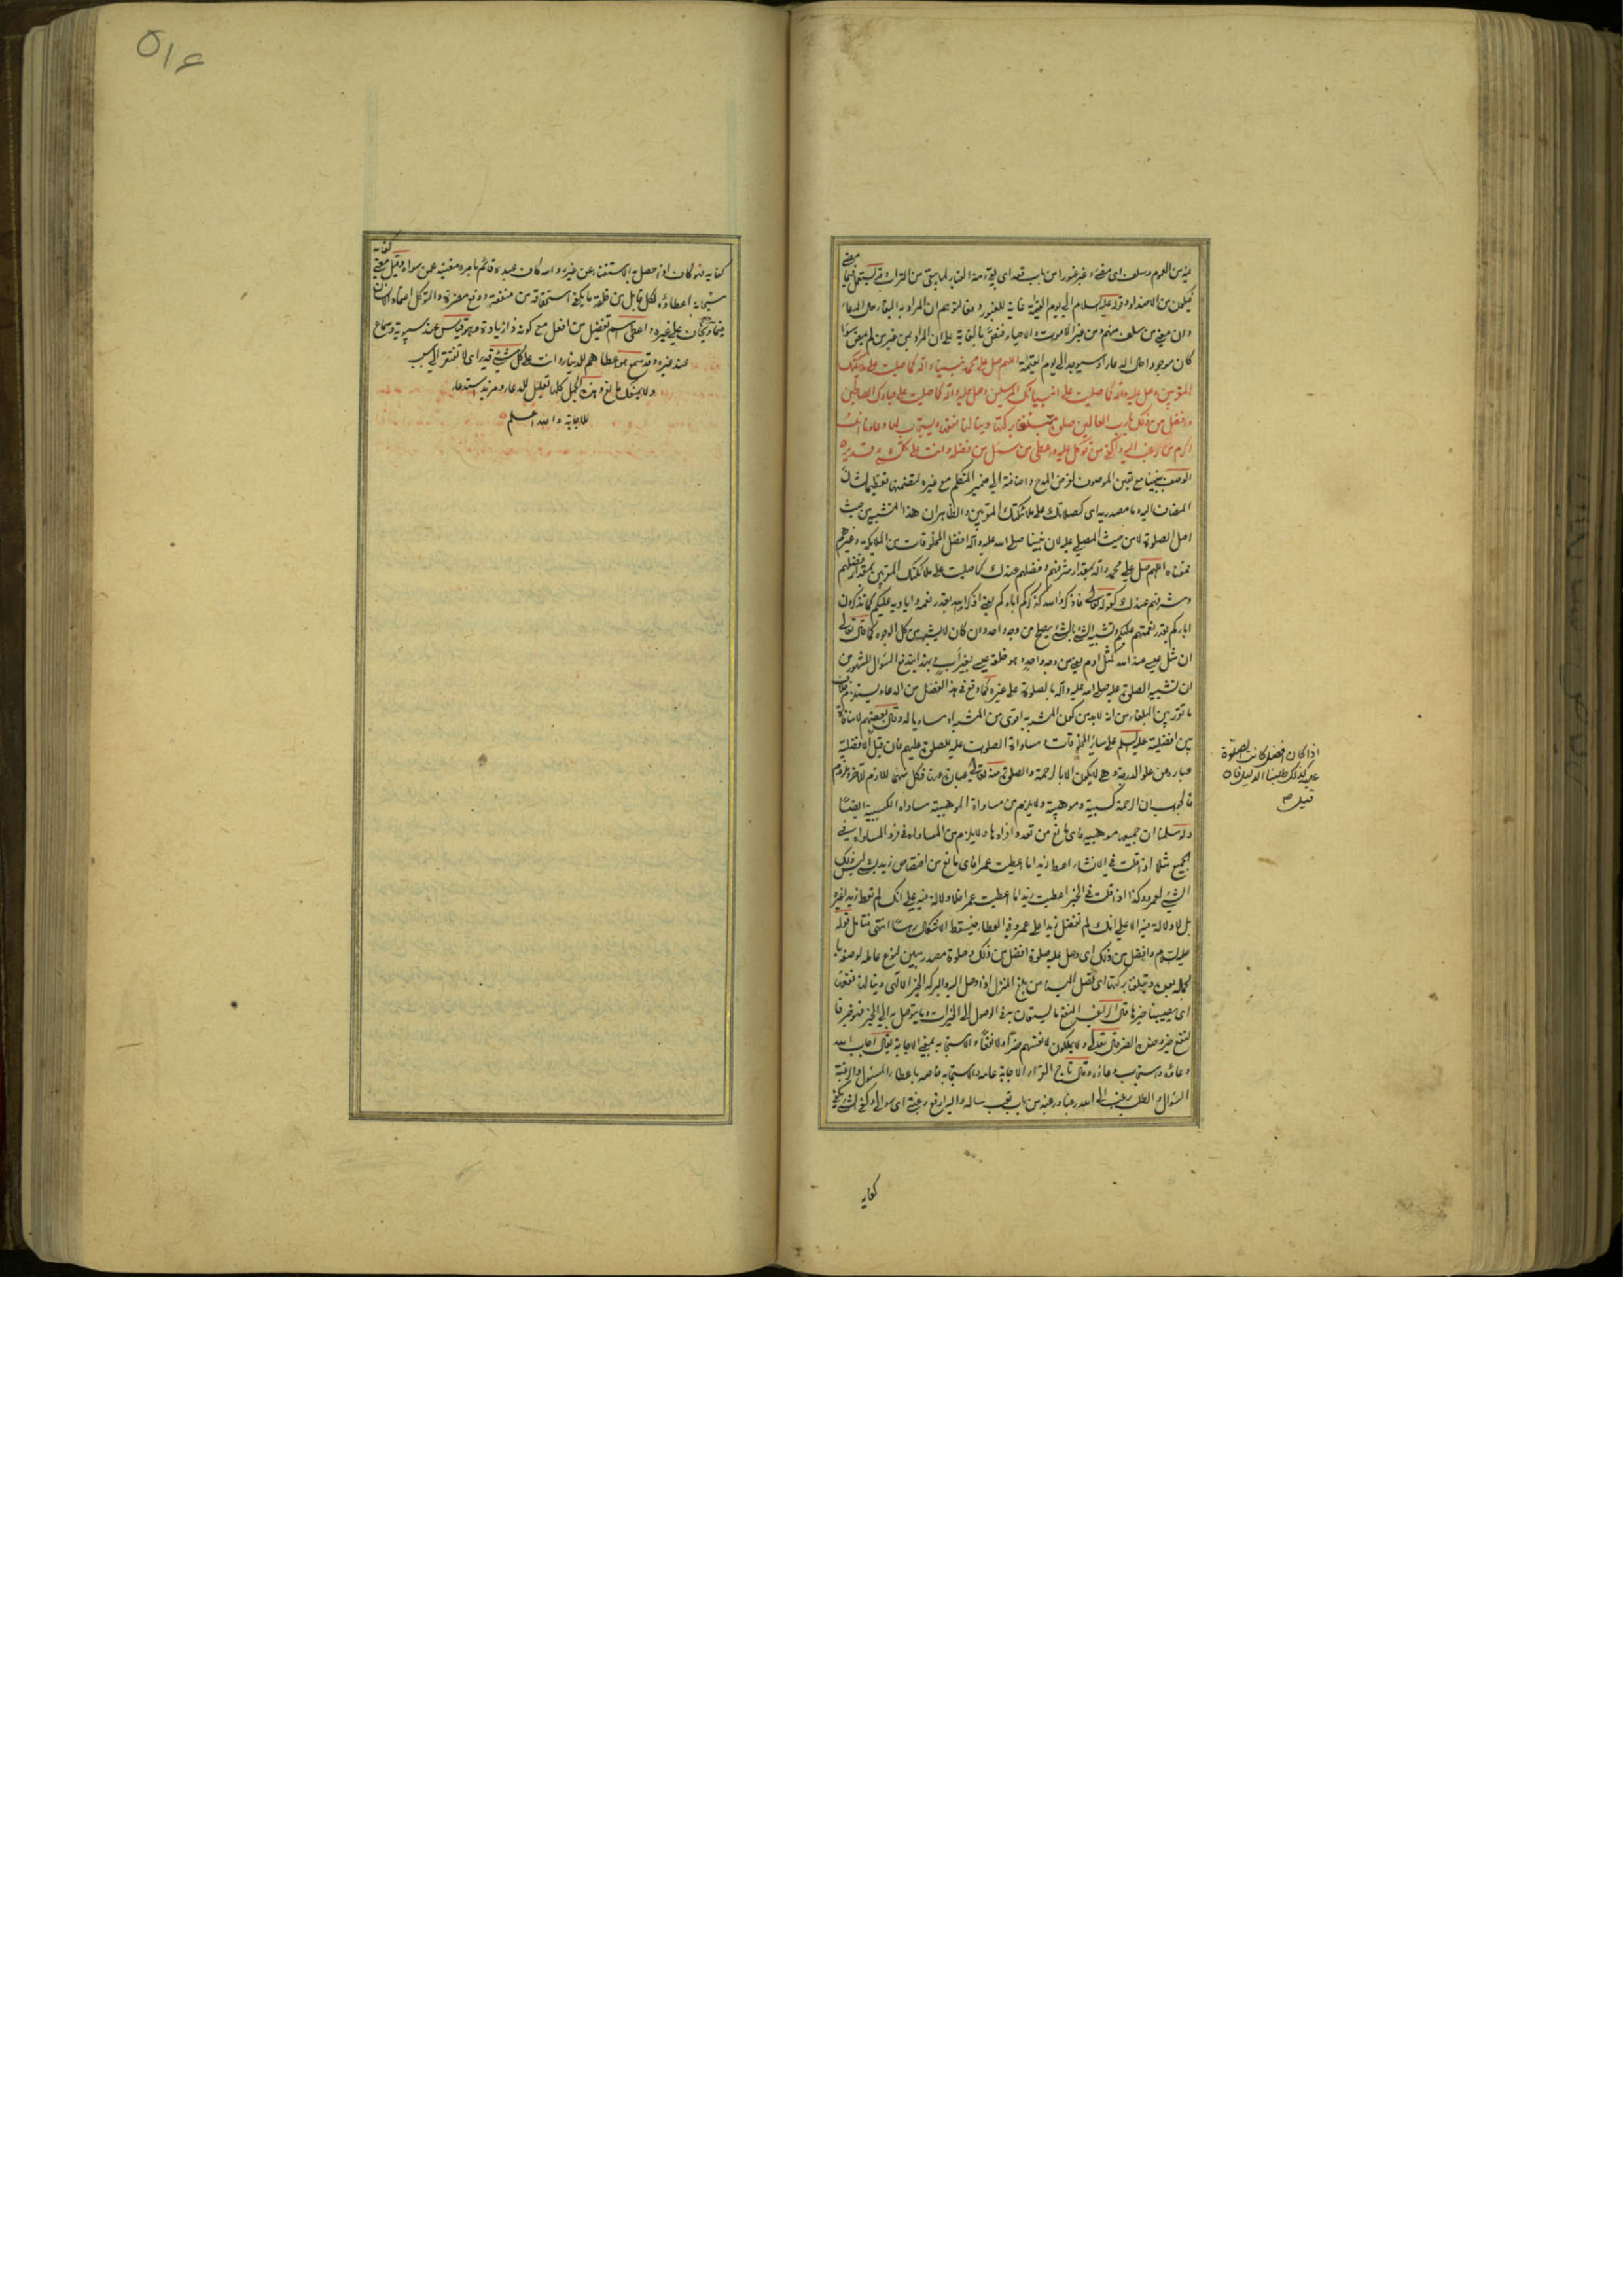 فيكون من الاضداد وقوله عليه السلام الى يوم القيمة غاية للغبور
كان موجودا حال الدعاء او سيوجد الى يوم القيمة اللهم صل على محمد نبينا وآله كما صليت على ملائكتك
المقربين وصل عليه وآله كما صليت على انبيائك المرسلين وصل عليه وآله كما صليت على عبادك الصالحين
وافضل من ذلك يا رب العالمين صلوة تبلغنا بركتها وينالنا نفعها ويستجاب لها دعاؤنا انك
اكرم من رغب اليه واكفى من توكل عليه واعطى من سئل من فضله وانت على كل شيء قدير
الوصف بنبينا مع تعين الموصوف لغرض المدح واضافته الى ضمير المتكلم مع غيره لتضمنها تعظيما لشأن
المضاف اليه وما مصدرية اى كصلاتك على ملائكتك المقربين والظاهر ان هذا التشبيه من حيث
اصل الصلوة لا من حيث المصلى عليه لان نبينا صلى الله عليه وآله افضل المخلوقات من الملائكة وغيرهم
فمعناه اللهم صل على محمد وآله بمقدار شرفهم وفضلهم عندك كما صليت على ملائكتك المقربين بمقدار فضلهم
وشرفهم عندك كقوله تعالى فاذكروا الله كذكركم اباءكم يعنى اذكروا الله بقدر نعمه واياديه عليكم كما تذكرون
اباءكم بقدر نعمتهم عليكم وتشبيه الشيء بالشيء يصح من وجه واحد وان كان لا يشبهه من كل الوجوه كما قال تعالى
ان مثل عيسى عند الله كمثل ادم يعنى من وجه واحد وهو خلقه عيسى بغير اب وبهذا يندفع السؤال المشهور من
ان تشبيه الصلوة عليه صلى الله عليه وآله بالصلوة على غيره كما وقع في هذا الفصل من الدعاء يستلزم خلاف
ما تقرر بين البلغاء من انه لا بد من كون المشبه به اقوى من المشبه او مساويا له وقال بعضهم لا منافاة
بين افضليته عليه السلم على سائر المخلوقات ومساواة الصلوة عليه للصلوة عليهم فان قيل الافضلية
عبارة عن علو الدرجة وهى لا يكون الا بالرحمة والصلوة منه تعالى عبارة عنها فكل منهما للازم للآخر وملزوم
فالجواب ان الرحمة كسبية وموهبية ولا يلزم من مساواة الموهبية مساواة الكسبية ايضا
ولو سلمنا ان جميعها موهبية فاى مانع من تعدد افرادها ولا يلزم من المساواة فى فرد المساواة فى
الجميع مثلا اذا قلت فى الانشاء اعط زيدا ما اعطيت عمرا فاى مانع من اختصاص زيد بشيء ليس ذلك
الشيء لعمرو وكذا اذا قلت فى الخبر اعطيت زيدا ما اعطيت عمرا فلا دلالة فيه على انك لم تعط زيدا غيره
بل لا دلالة فيه الا على انك لم تفضل زيدا على عمرو فى العطاء فيسقط الاشكال رأسا انتهى فتأمل قوله
عليه السلام وافضل من ذلك اى وصل عليه صلوة افضل من ذلك وصلوة مصدر مبين لنوع عامله لوصفه با
لجملة بعده وتبلغنا بركتها اى تصل الينا من بلغ المنزل اذا وصل اليه والبركة الخير الالهى وينالنا نفعها
اى يصيبنا خيرها قال الراغب النفع ما يستعان به فى الوصول الى الخيرات وما يتوصل به الى الخير فهو خير فا
لنفع خير وضده الضر قال تعالى ولا يملكون لانفسهم ضرا ولا نفعا والاستجابة بمعنى الاجابة يقال اجاب الله
دعاءه واستجاب دعاءه وقال تاج القراء الاجابة عامة والاستجابة خاصة باعطاء المسئول والرغبة
السؤال والطلب رغب الى الله رغبا ورغبة من باب تعب ساله واليه ارفع رغبتى اى سؤالى وكفى الشيء يكفى
كفايه
اذا كان افضل كانت الصلوة
عليه كذلك طلبنا الدليل فان
قيل ص
٥١٤
كفاية فهو كاف اذا حصل به الاستغناء عن غيره والله كاف عبده قائم بامره ومغنيه عمن سواه وقيل معنى
سبحانه اعطاؤه لكل قابل من خلقه ما يكفى استحقاقه من منفعة ودفع مضرة والتوكل اعتماد الانسان
فيما يرجى على غيره واعطى اسم تفضيل من افعل مع كونه ذا زيادة وهو قياس عند سيبويه وسماع
عند غيره وقد سمع هو اعطاهم للدينار وانت على كل شيء قدير اى لا تفتقر الى سبب
ولا يمنعك مانع وهذه الجمل كلها تعليل للدعاء ومزيد استدعاء
للاجابة والله اعلم